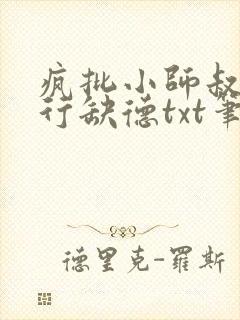 疯批小師叔
行缺德txt筆
德里克-羅斯